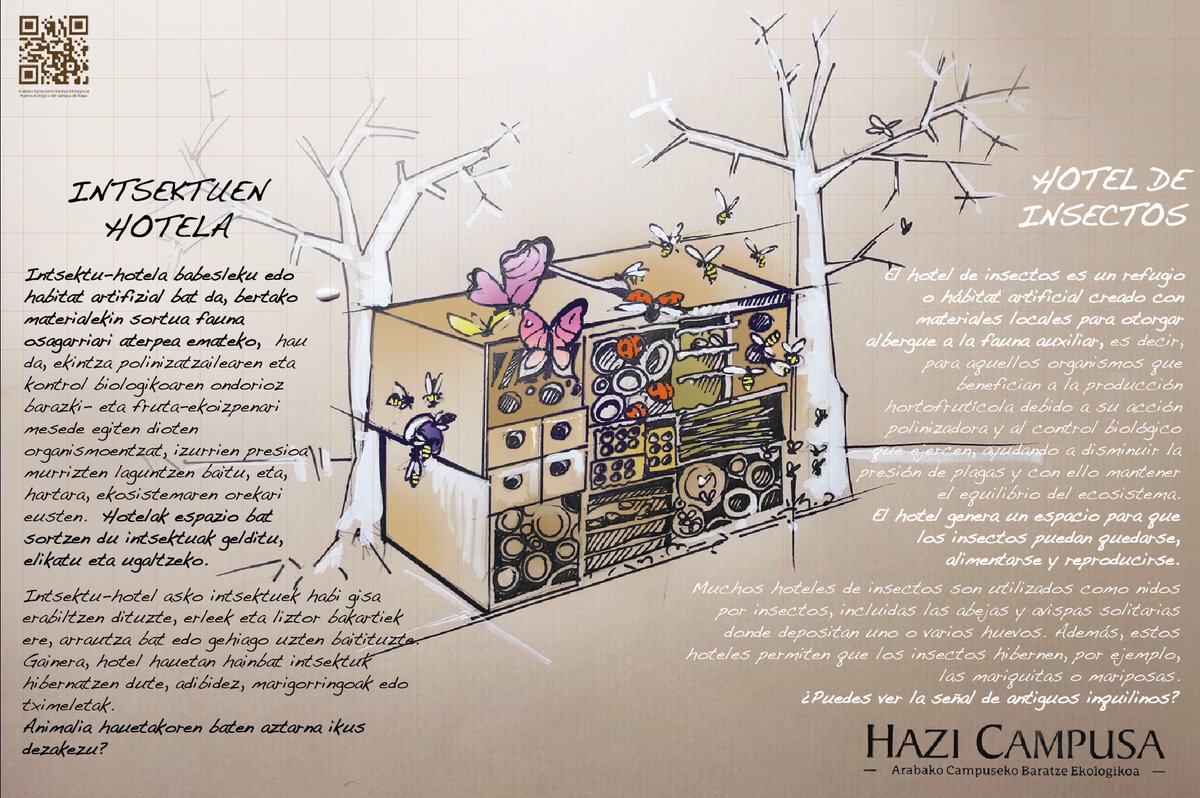 Arabako Campuseko Baratze Ekologikoa
Huerto ecológico del Campus de Álava
INTSEKTUEN
HOTELA
Intsektu-hotela babesleku edo
habitat artifizial bat da, bertako
materialekin sortua fauna
osagarriari aterpea emateko, hau
da, ekintza polinizatzailearen eta
kontrol biologikoaren ondorioz
barazki- eta fruta-ekoizpenari
mesede egiten dioten
organismoentzat, izurrien presioa
murrizten laguntzen baitu, eta,
hartara, ekosistemaren orekari
eusten. Hotelak espazio bat
sortzen du intsektuak gelditu,
elikatu eta ugaltzeko.
Intsektu-hotel asko intsektuek habi gisa
erabiltzen dituzte, erleek eta liztor bakartiek
ere, arrautza bat edo gehiago uzten baitituzte.
Gainera, hotel hauetan hainbat intsektuk
hibernatzen dute, adibidez, marigorringoak edo
tximeletak.
Animalia hauetakoren baten aztarna ikus
dezakezu?
HOTEL DE
INSECTOS
El hotel de insectos es un refugio
o hábitat artificial creado con
materiales locales para otorgar
albergue a la fauna auxiliar, es decir,
para aquellos organismos que
benefician a la producción
hortofrutícola debido a su acción
polinizadora y al control biológico
que ejercen, ayudando a disminuir la
presión de plagas y con ello mantener
el equilibrio del ecosistema.
El hotel genera un espacio para que
los insectos puedan quedarse,
alimentarse y reproducirse.
Muchos hoteles de insectos son utilizados como nidos
por insectos, incluidas las abejas y avispas solitarias
donde depositan uno o varios huevos. Además, estos
hoteles permiten que los insectos hibernen, por ejemplo,
las mariquitas o mariposas.
¿Puedes ver la señal de antiguos inquilinos?
HAZI CAMPUSA
Arabako Campuseko Baratze Ekologikoa